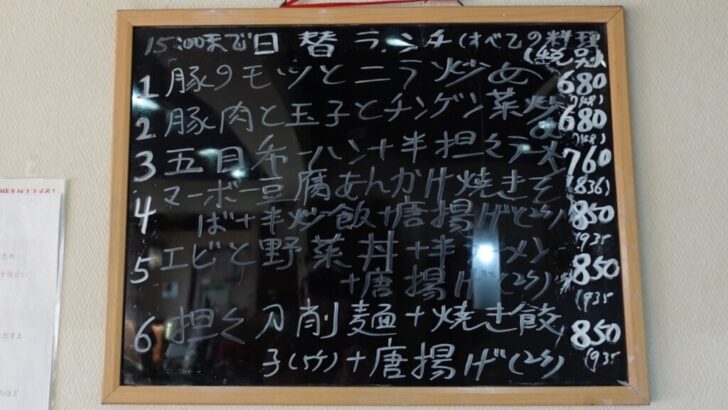 15:00まで日替ランチ(すべての料理
(税込)
1 豚のモツとニラ炒め 680
(748)
2 豚肉と玉子とチンゲン菜炒め 680
(748)
3 五目チャーハン+半担々 760
(836)
マーボー豆腐あんかけ焼きそ
4 ば+半炒飯+唐揚げ(2ケ) 850
(935
5 エビと野菜丼+半ラーメン
+唐揚げ(2ケ) 850
(935
6 担々刀削麺+焼き餃 850
子(5ケ)+唐揚げ(2ケ) (935